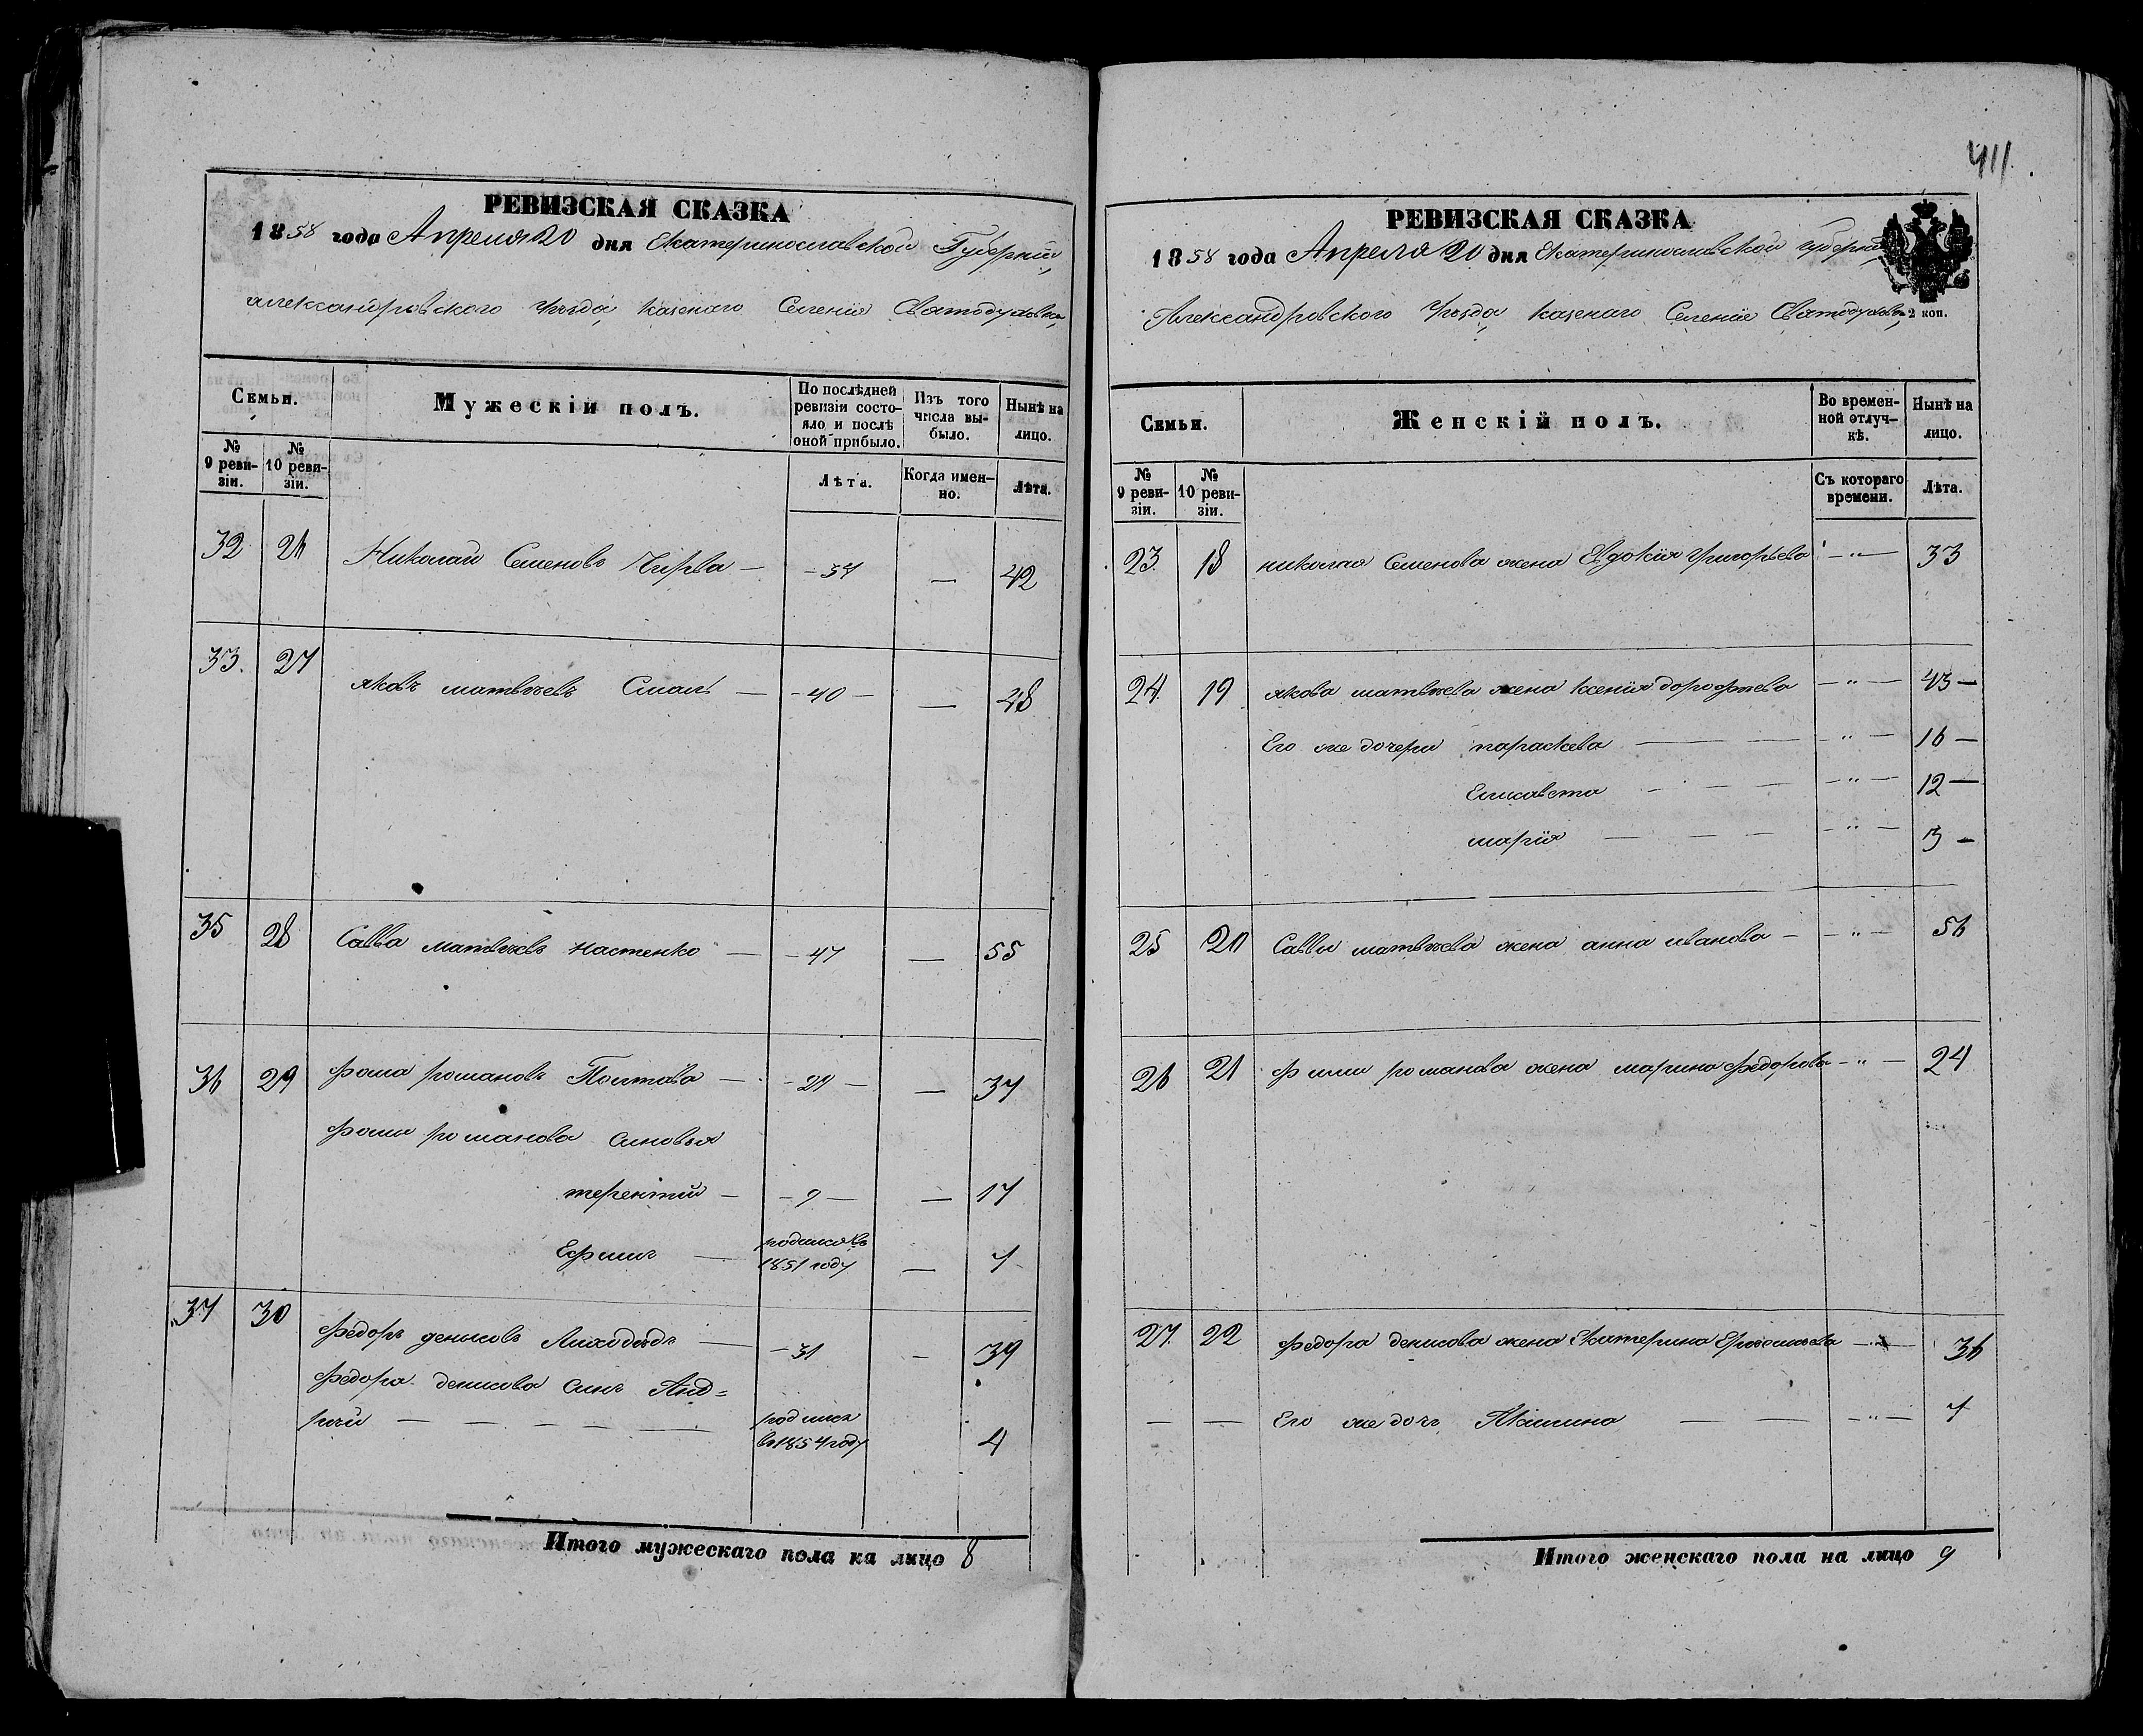 411.
РЕВИЗСКАЯ СКАЗКА
1858 года Апреля 20 дня Екатеринославской Губернии,
александровского Уѣзда, казенаго Селенія Святодуховки,
Семьи.
Мужескій полъ.
По послѣдней ревизіи состояло и послѣ оной прибыло.
Изъ того числа выбыло.
Нынѣ на лицо.
№ 9 ревизіи.
№ 10 ревизіи.
Лѣта.
Когда именно.
Лѣта.
32 26 Николай Семеновъ Чирва — — 34 — 42
33. 27 яковъ матвѣевъ Смаль — — 40 — — 48
35 28 Савва матвѣевъ настенко — — 47 — 55
36 29 фома романовъ Полтава — — 29 — — 37
фомы романова сыновья
терентій — — 9 — — 17
Ефимъ — родился въ 1851 году — 7
37 30 федоръ денисовъ Лиходѣдъ — — 31 — 39
федора денисова сынъ Анд=
рѣй — — — — — родился
въ 1854 году 4
Итого мужескаго пола на лицо 8
РЕВИЗСКАЯ СКАЗКА
1858 года Апреля 20 дня Екатеринославской губерніи,
Александровского Уѣзда, казенаго Селенія Святодуховки,
2 коп.
Семьи.
Женскій полъ.
Во временной отлучкѣ.
Нынѣ на лицо.
№ 9 ревизіи.
№ 10 ревизіи.
Съ котораго времени.
Лѣта.
23. 18 николая Семенова жена Евдокія григорьева — " — 33
24. 19 якова матвѣева жена ксенія дорофѣева — " — 43 —
Его же дочери параскева — — — " — 16 —
Елисавета — — — — " — 12 —
марія — — — — " — 3 —
25 20 Саввы матвѣева жена анна иванова — — " — 56
26 21 фомы романова жена марина федорова — " — 24
27. 22 федора денисова жена Екатерина — " — 36
— — Его же дочь Акилина — — — " — 7
Итого женскаго пола на лицо 9